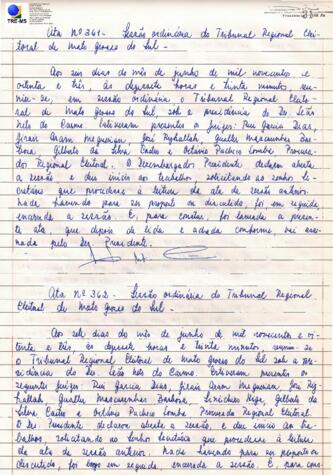 TRE-MS
Ata Nº 361 - Sessão ordinária do Tribunal Regional Elei-
toral de Mato Grosso do Sul -
Aos seis dias do mês de junho de mil novecentos e
oitenta e três, às dezessete horas e trinta minutos
reuniu-se, em sessão ordinária o Tribunal Regional Eleito-
ral de Mato Grosso do Sul, sob a presidência do Des. Leão
Neto do Carmo. Estiveram presentes os juízes: Rui Garcia Dias,
Jirair Aram Meguerian, José Rizkallah, Gualter Mascarenhas Bar-
bosa, Gilberto da Silva Castro e Octávio Pacheco Lomba, Procura-
dor Regional Eleitoral. O Desembargador Presidente declarou aberta
a sessão e deu início aos trabalhos, solicitando ao senhor Se-
cretário que procedesse à leitura da ata da sessão anterior.
Nada havendo para ser proposto ou discutido, foi em seguida,
encerrada a sessão. E, para constar, foi lavrada a presen-
te ata, que depois de lida e achada conforme, vai assi-
nada pelo Des. Presidente.
Ata nº 362 - Sessão ordinária do Tribunal Regional
Eleitoral de Mato Grosso do Sul -
Aos sete dias do mês de junho de mil novecentos e oi-
tenta e três, às dezessete horas e trinta minutos, reuniu-se
o Tribunal Regional Eleitoral de Mato Grosso do Sul sob a Pre-
sidência do Des. Leão Neto do Carmo. Estiveram presentes os
seguintes juízes: Rui Garcia Dias, Jirair Aram Meguerian, José Riz-
kallah, Gualter Mascarenhas Barbosa, Higa, Gilberto da
Silva Castro e Octávio Pacheco Lomba, Procurador Regional Eleitoral.
O Des. Presidente declarou aberta a sessão, e deu início aos tra-
balhos, solicitando ao Senhor Secretário que procedesse à leitura
da ata da sessão anterior. Nada havendo para ser proposto ou
discutido, foi logo em seguida, encerrada a sessão. E, para cons-